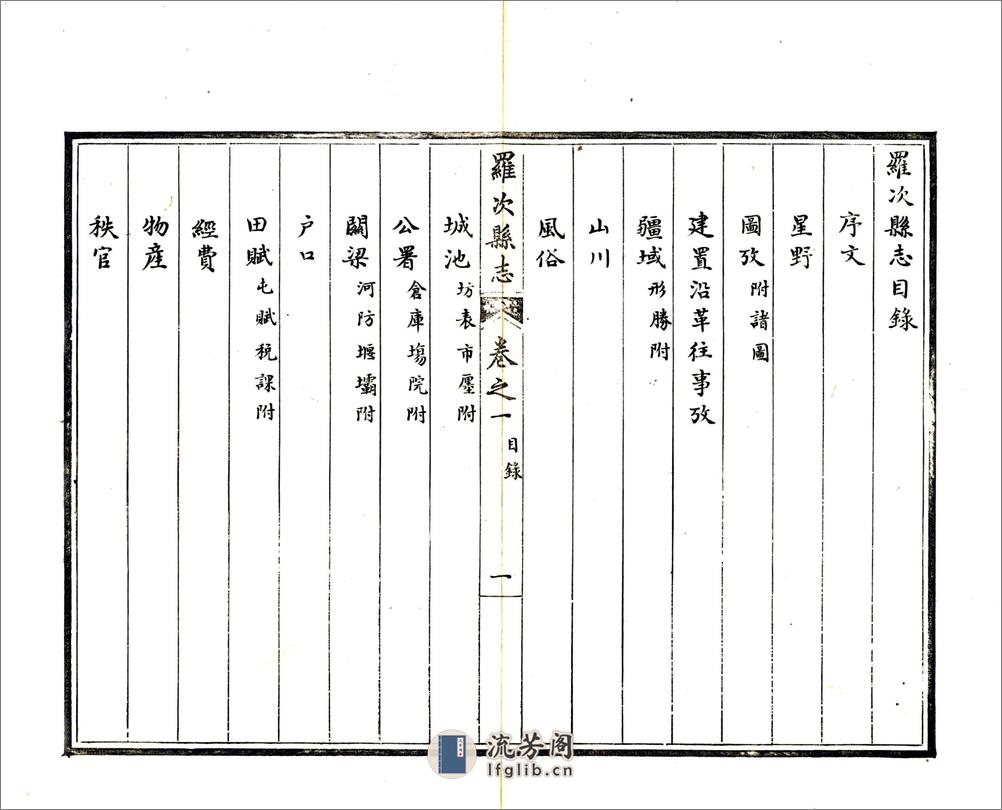 羅次縣志目錄
序文
星野
圖攷附諸圖
建置沿革往事攷
疆域形勝附
山川
風俗
羅次縣志 卷之一 目錄 一
城池坊表市廛附
公署倉庫塲院附
關梁河防堰壩附
户口
田賦屯賦税課附
經費
物産
秩官
流芳阁
lfglib.cn